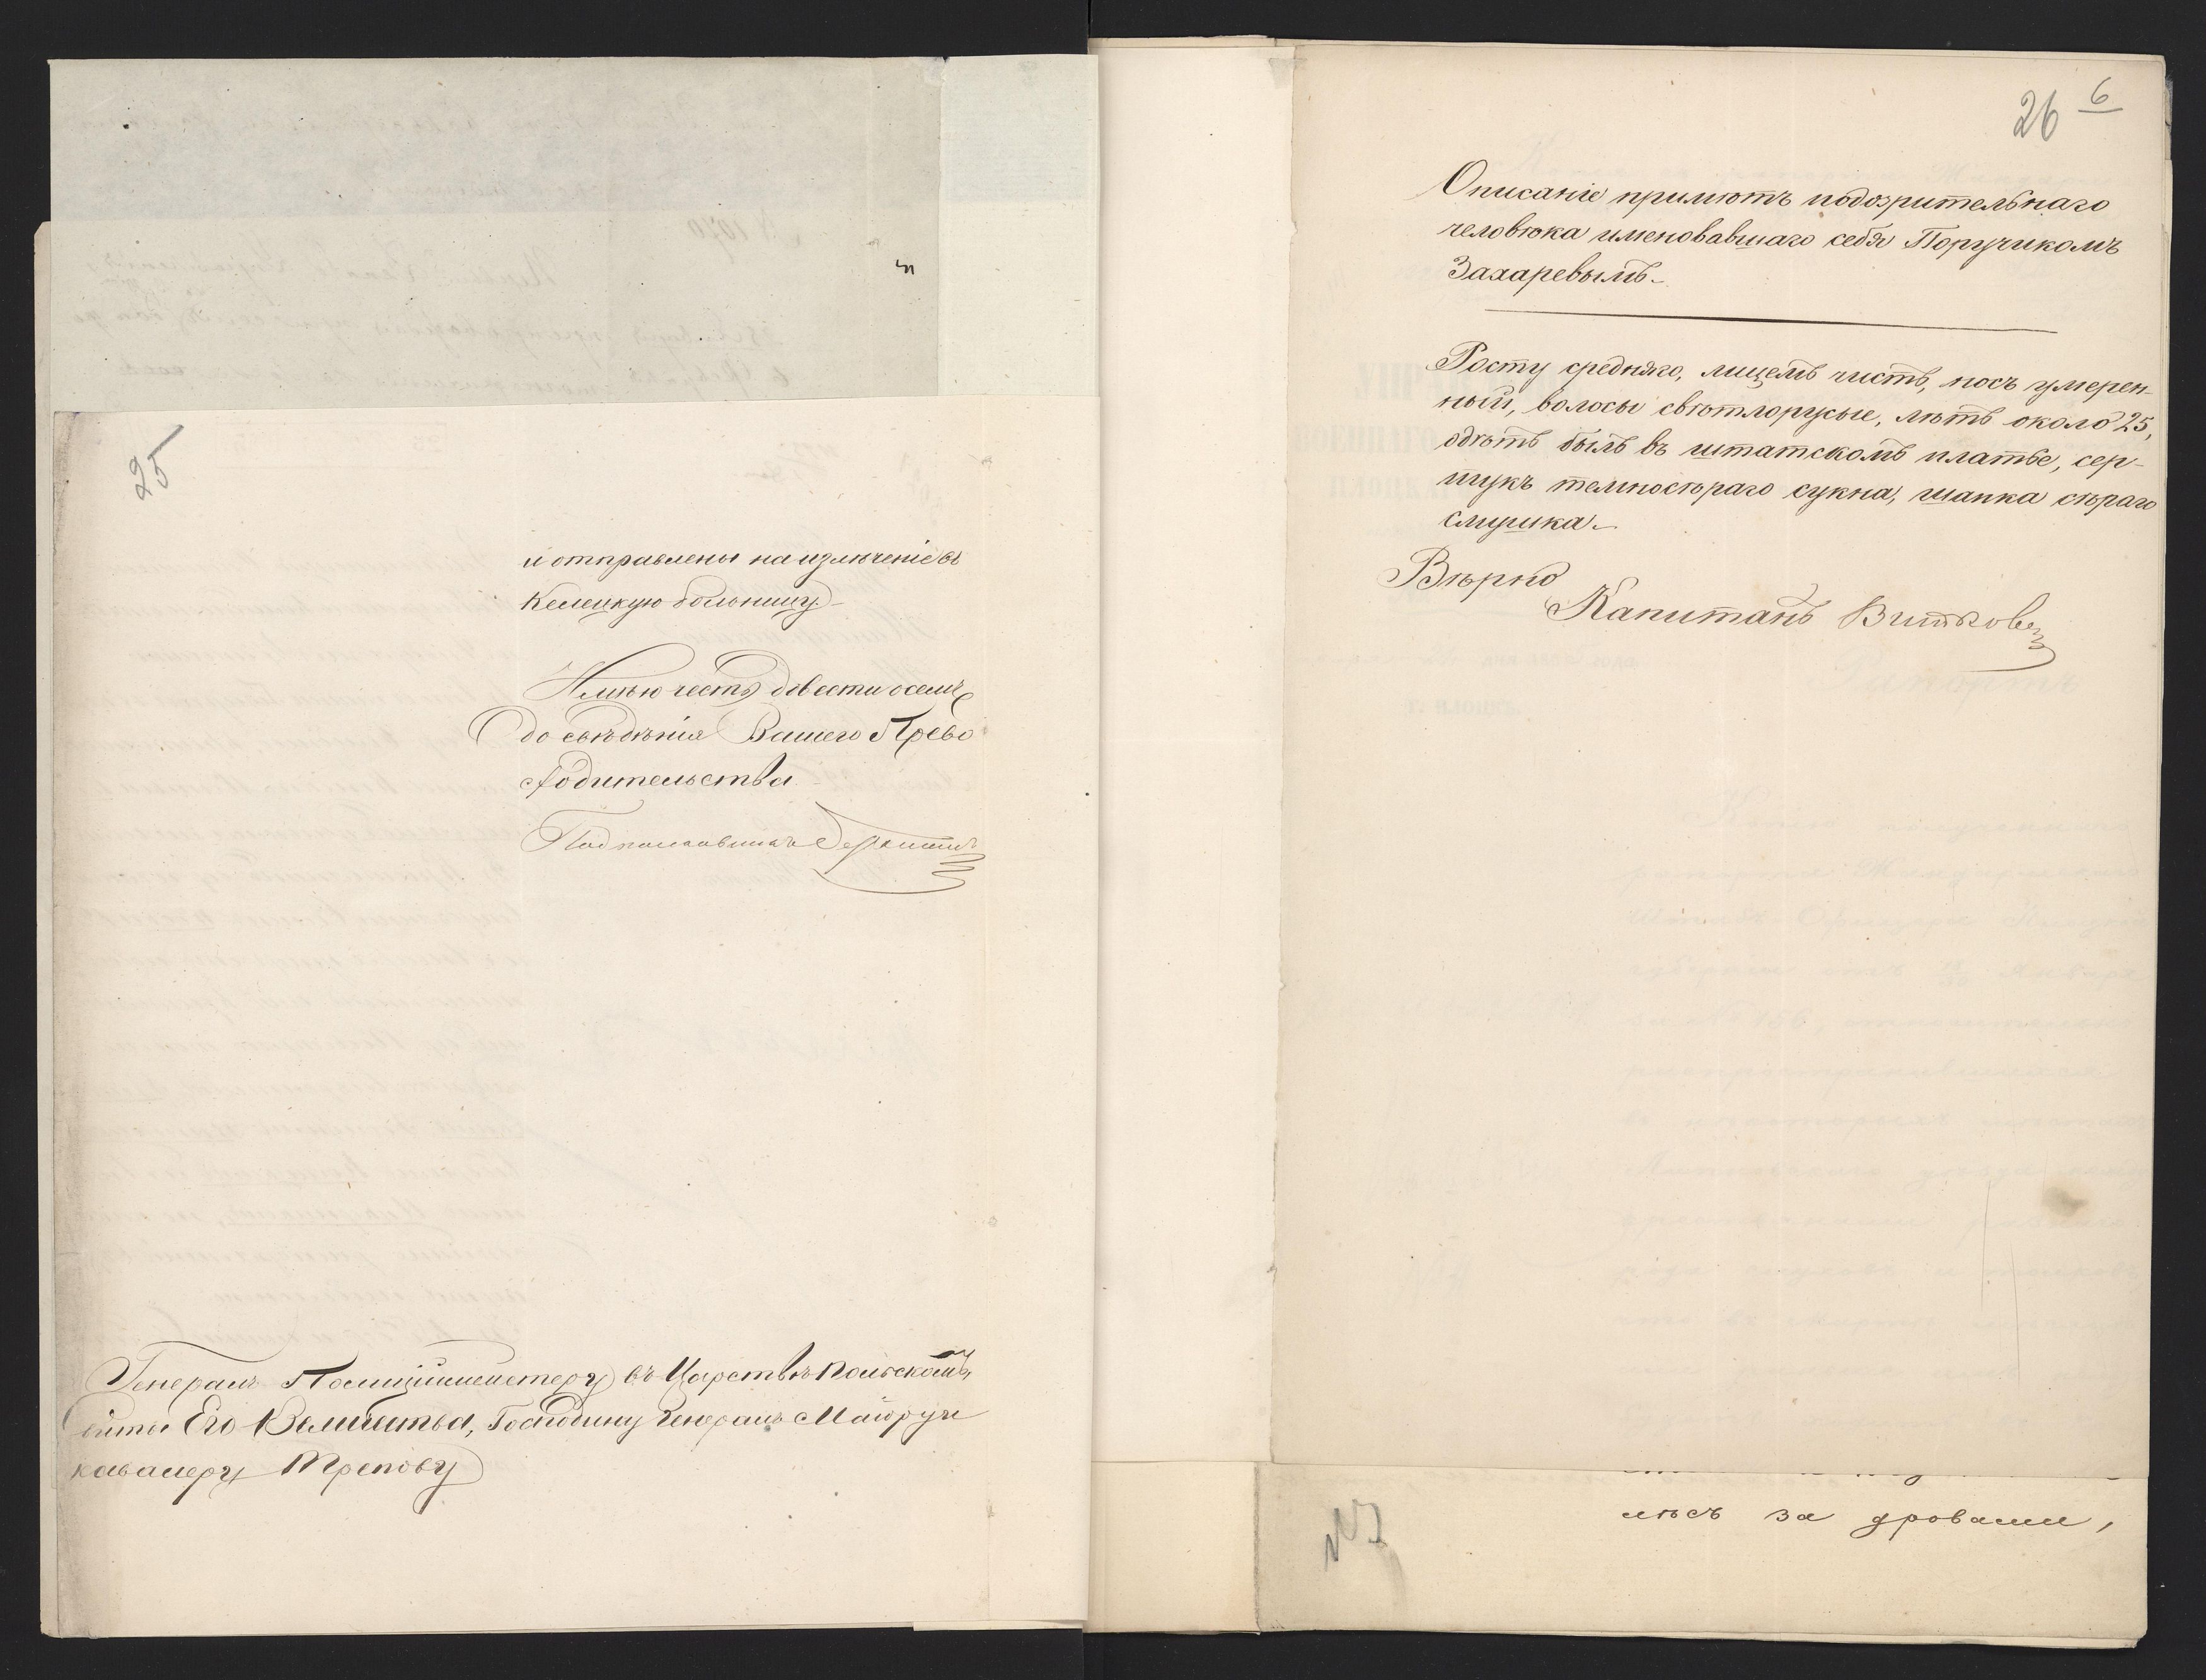 25
и отправлены на излѣченіе въ
Келецкую больницу
Имѣю честь довести о семъ
до свѣдѣнія Вашего Прево
сходительства
Подполковникъ
Генералъ Полиціймейстеру въ Царствѣ Польскомъ,
Свиты Его Величества, Господину Генералъ Маіору и
кавалеру Трепову
26 6
Описаніе примѣтъ подозрительнаго
человѣка именовавшаго себя Поручикомъ
Захаревымъ.
Росту средняго, лицемъ чистъ, носъ умерен-
ный, волосы свѣтлорусые, лѣтъ около 25,
одѣтъ былъ въ штатскомъ платье, сер-
тукъ темносѣраго сукна, шапка сѣраго
смушка.
Вѣрно
Капитанъ
лѣсъ за дровами,